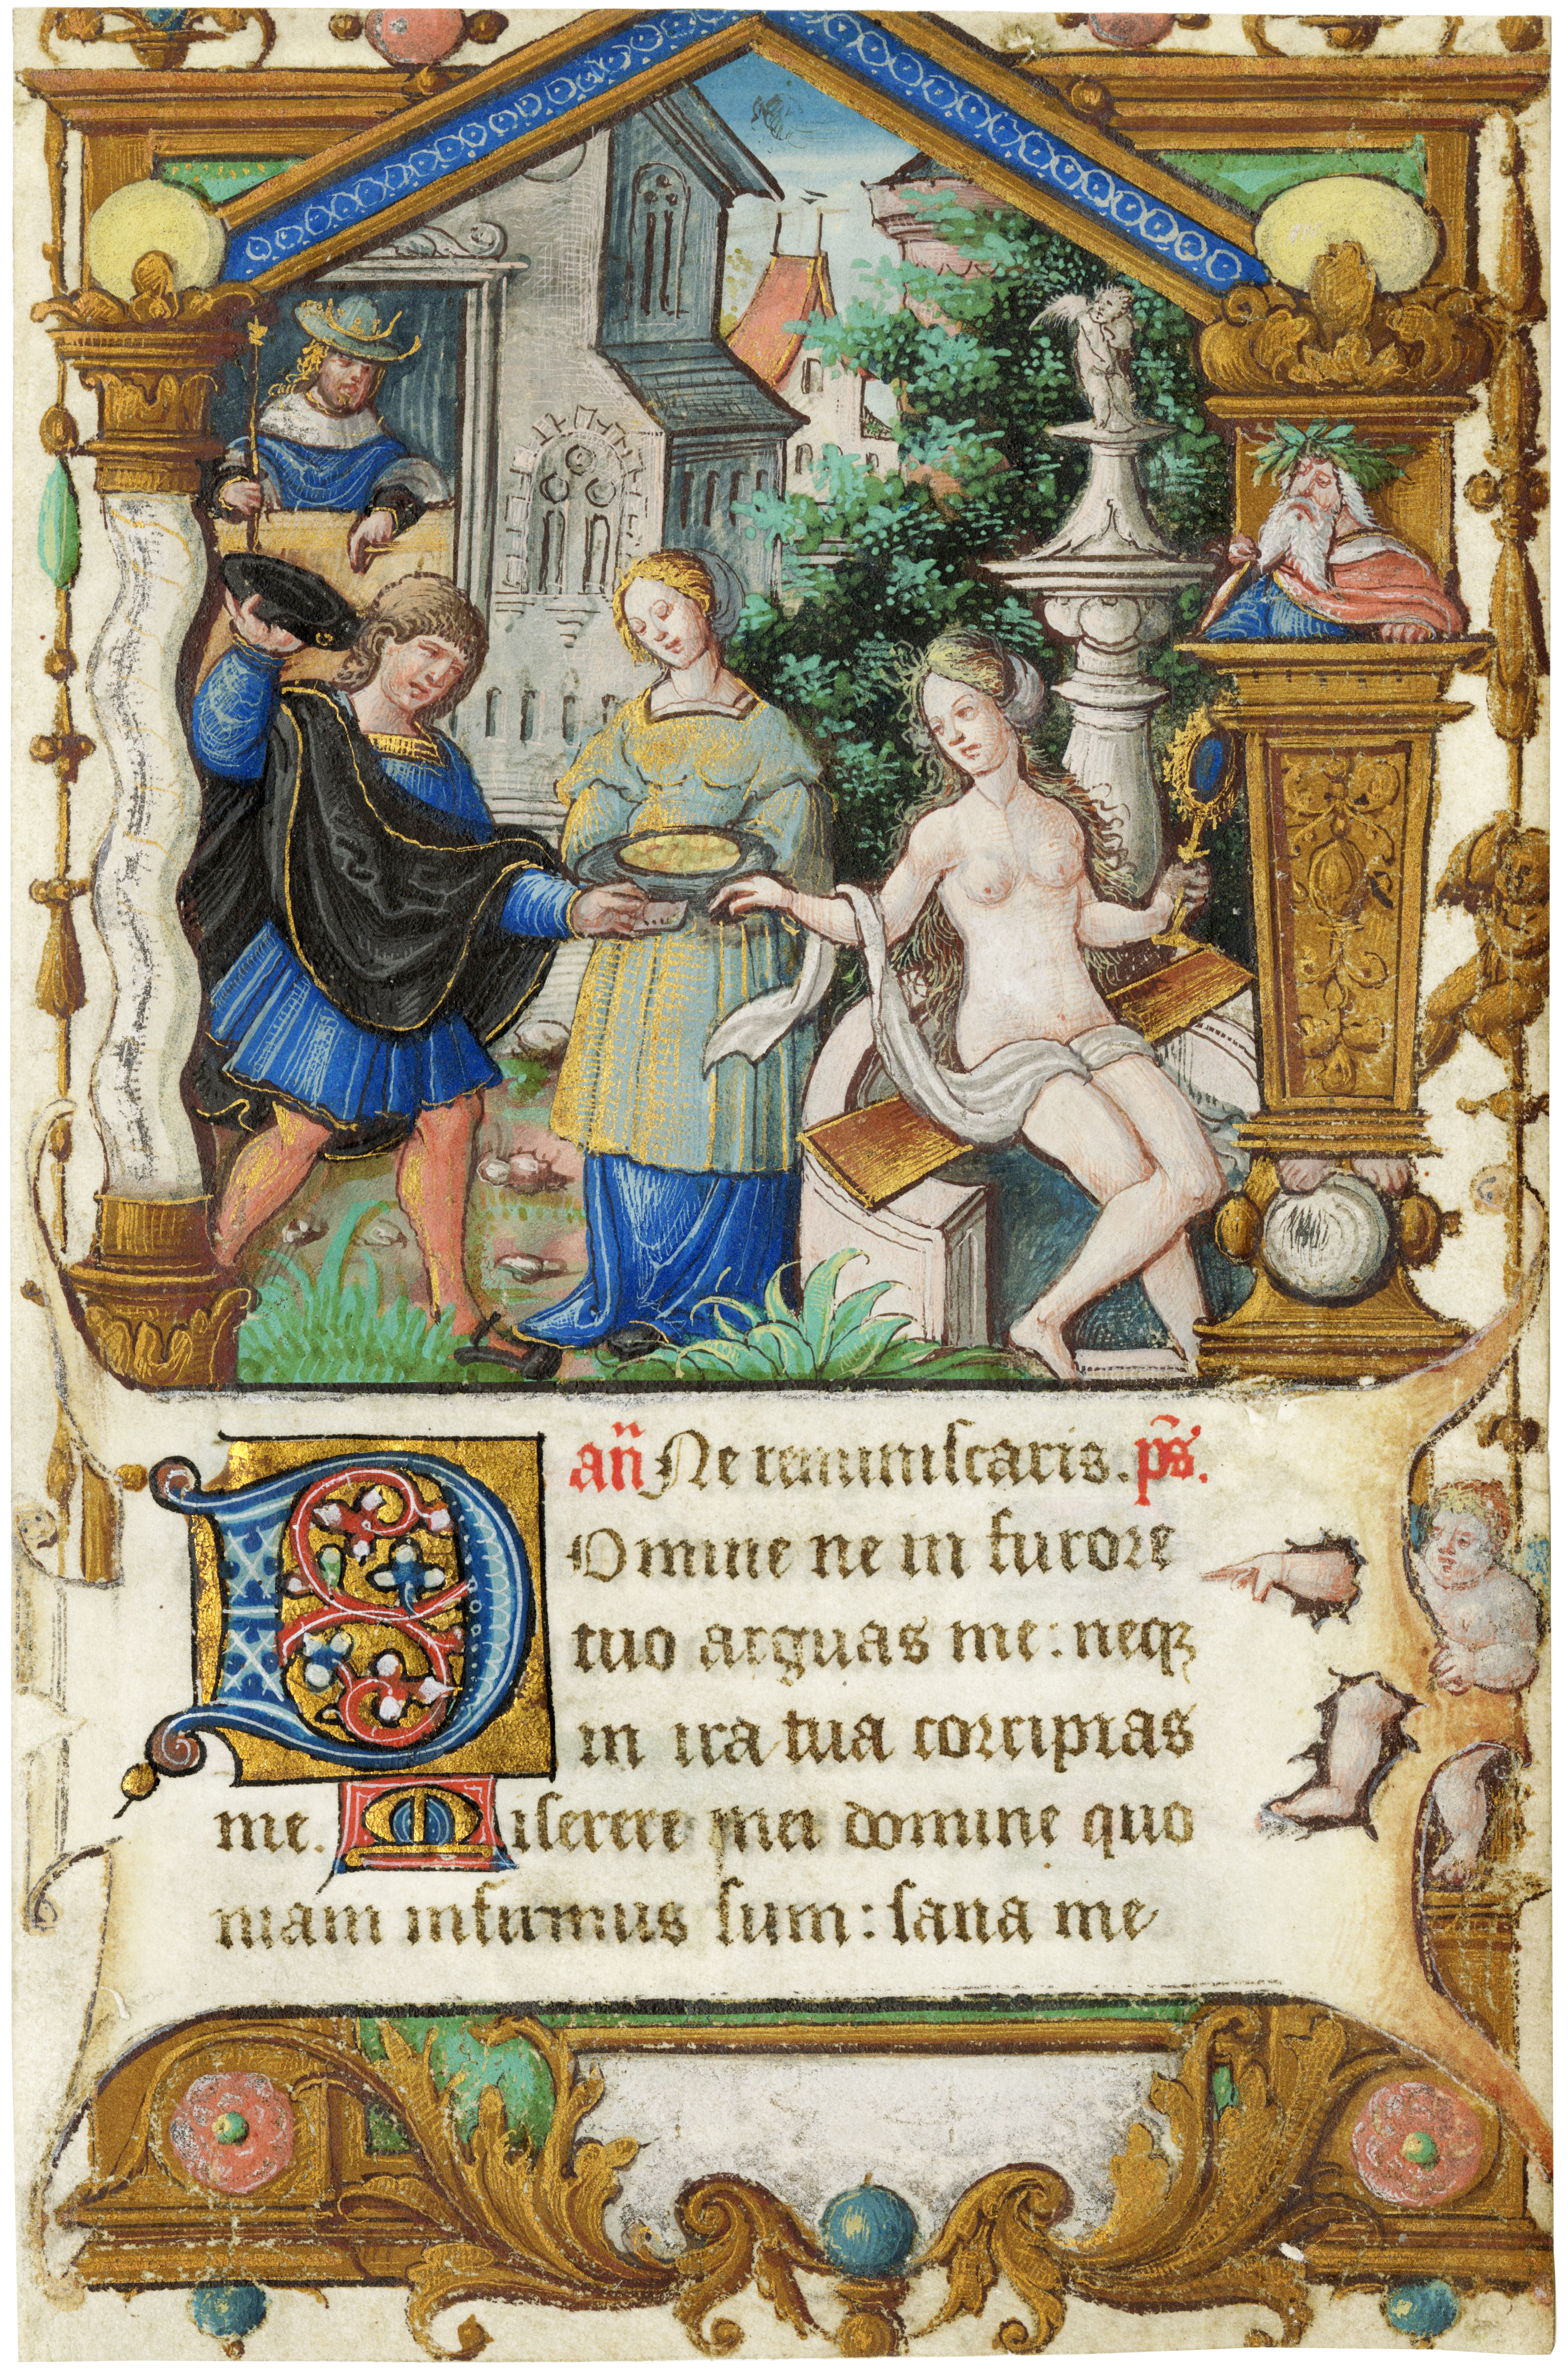 an̄ Ne reminiscaris. ps̄.
Domine ne in furore
tuo arguas me: neqꝫ
in ira tua corripias
me. Miserere mei domine quo
niam infirmus sum: sana me